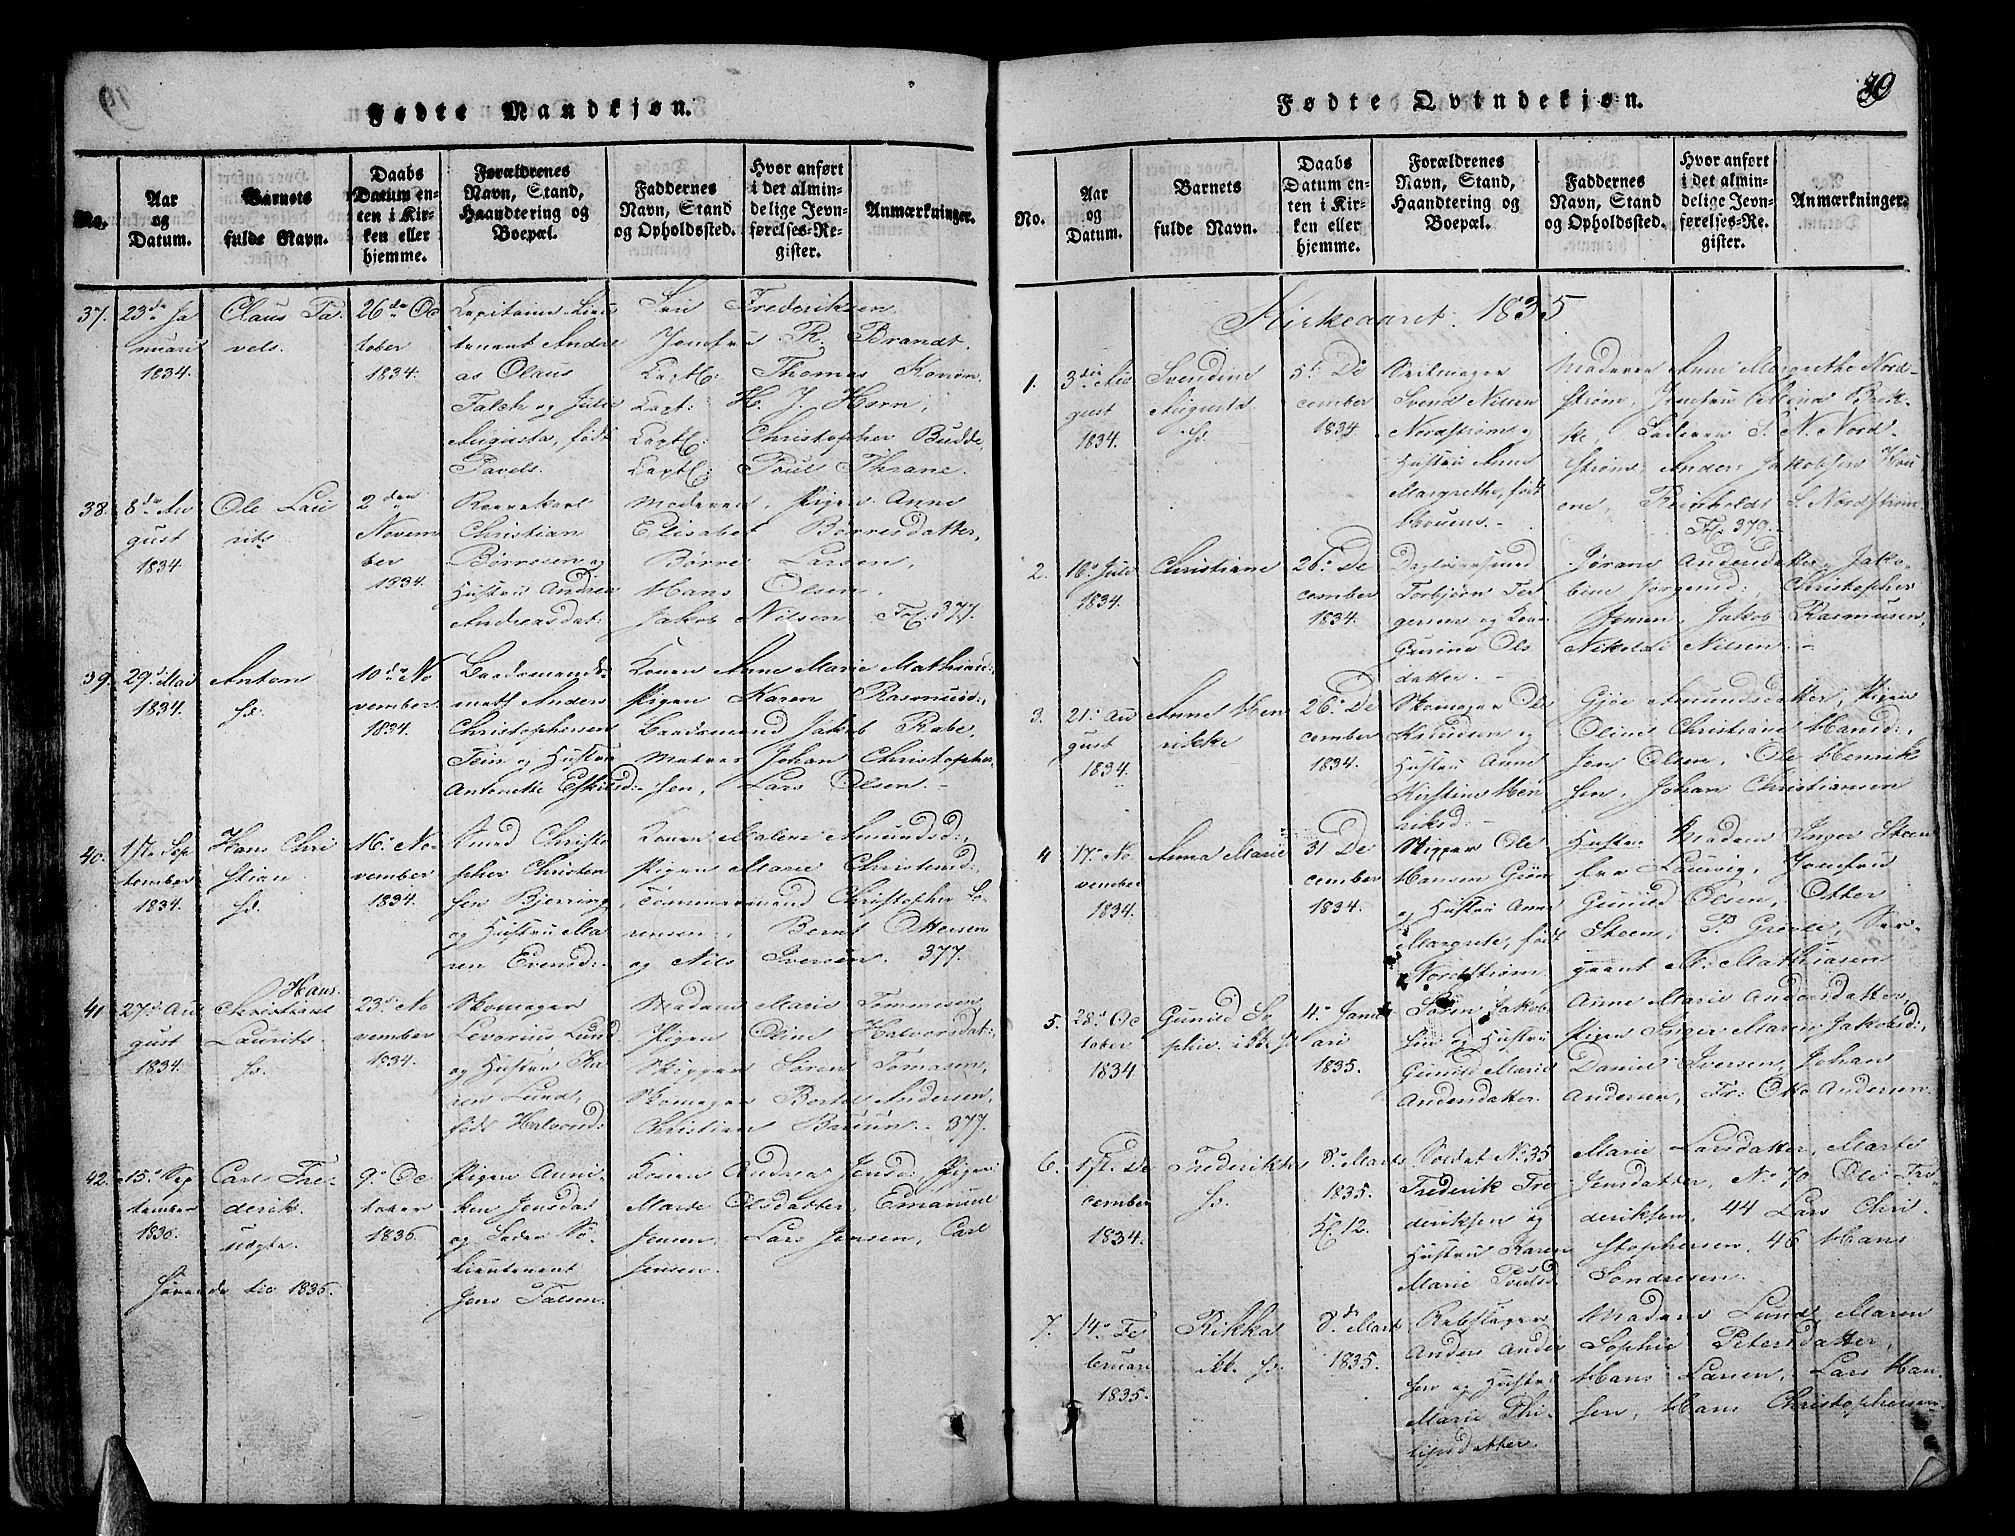 Fødte Mandkjøn.
No.
Aar
og
Datum.
Barnets
fulde Navn.
Daabs
Datum en-
ten i Kir-
ken eller
hjemme.
Forældrenes
Navn, Stand,
Haandtering og
Boepæl.
Faddernes
Navn, Stand
og Opholdssted.
Hvor anført
i det almin-
delige Jevn-
førelses-Re-
gister.
Anmærkninger.
37.
23de Ja
nuari
1834.
Claus Pa
vels.
26de Oc
tober
1834.
Capitaine Lieu
tenant Andre
as Olaus
Falch og Julie
Augusta, født
Pavels.
Frederiksen
Jomfru R. Brandt.
Capt: Thomas Konow,
Capt: H. J. Horn,
Capt: Christopher Budde,
Capt: Poul Thrane.
38.
8de Au
gust
1834.
Ole Lau
rits
2den
Novem
ber
1834.
Christian
Børresen og
Hustru Andrea
Andreasdat:
Moderen, Pigen Anne
Elisabet Børresdatter,
Børre Larsen,
Hans Olsen,
Jakob Nilsen Fol. 377.
39.
29. Mai
1834.
Anton
10de No
vember
1834.
Baadsmands-
math Anders
Christophersen
Fein og Hustru
Antonette Eskilsd:
Konen Anne Marie Mathias:
Pigen Karen Rasmusd:,
Baadsmand Jakob Rabe,
Matros Johan Christopher-
sen, Lars Olsen.-
40.
1ste Sep
tember
1834.
Hans Chri
stian
16. No
vember
1834.
Smed Christo
pher Christen
sen Bjerring
og Hustru Ma
ren Evensd:
Konen Malene Amundsd:,
Pigen Marie Christensd:
Tømmermand Christopher So-
rensen, Bernt Ottersen
og Nils Iversen. 377.
41.
27. Au
gust
1834.
Hans
Christian
Laurits
23. No
vember
1834.
Skomager
Levorius Lund
og Hustru Ka
ren Lund,
født Halvorsd:
Madam Marie Tommesen
Pigen Oline Halvorsdat:
Skipper Soren Tomasen,
Skomager Bortel Andersen,
Christian Bruun. 377.
42.
15. Sep
tember
1836.
Carl Fre-
derik
uægte
9. Oc
tober
1836.
Pigen Anni
ken Jensdat
og Lader Sø-
Lieutenant
Jens Falsen.
Konen Andrea Jensd:, Pigen
Marte Olsdatter, Emanuel
Jensen, Lars Jensen, Carl
Jensen.
til 1836.
Fødte Qvindekjøn.
No.
Aar
og
Datum.
Barnets
fulde Navn.
Daabs
Datum en-
ten i Kir-
ken eller
hjemme.
Forældrenes
Navn, Stand,
Haandtering og
Boepæl.
Faddernes
Navn, Stand
og Opholdssted.
Hvor anført
i det almin-
delige Jevn-
førelses-Re-
gister.
Anmærkninger.
Kirkeaaret 1835
1.
3die Au
gust
1834.
Svendine
Augusta.
5. De
cember
1834
Seilmager
Svend Nilsen
Nordstrøm og
Hustru Anne
Margrethe, født
Houen.-
Moderen Anne Margrethe Nord-
strøm, Jomfru Bek-
ke, Faderen S. N. Nord-
strøm, Anders Jakobsen
Reinholdt S. Nordstrøm
Fol. 379.-
2.
16. Juli
1834.
Christiane
26. De
cember
1834.
Dagleiersmand
Torbjørn Ter
gersen og Kone
Gurine Ols
datter.-
Jørane Andersdatter, Jako-
bine Jørgensd:, Christopher
Jensen, Jakob Rasmusen,
Nikolai Nilsen.-
3.
21. Au
gust
1834.
Anne Hen
rikke
26. De
cember
1834.
Skomager Ole
Knudsen og
Hustru Anne
Kirstine Hen
riksd:
Gjøe Amundsdatter, Pigen
Oline Christiane Hansd:,
Jens Olsen, Ole Henrik-
sen, Johan Christiansen
4
17. No
vember
1834.
Anna Marie
31 De
cember
1834.
Skipper Ole
Hansen Grøn
og Hustru Anna
Margrete, født
Nordstrøm
Madam Inger Steen
fra Laurvig, Jomfru
Gunild Olsen, Otter
Steen, P. Greve, Ser-
geant M. Mathiasen
5.
28. Oc
tober
1834
Gunild So
phie.
4. Janu
ari
1835.
Søren Jakob-
sen og Hustru
Gunild Marie
Andersdatter
Anne Marie Andersdatter,
Pigen Inger Marie Jakobsd:,
Daniel Iversen, Johan
Andersen, Fr: Otto Andersen.
6.
1st. De
cember
1834.
Frederikke
8. Marts
1835.
Kl. 12.
Soldat No. 35
Frederik Fre
deriksen og
Hustru Karen
Marie Poulsd.
Marie Larsdatter, Marte
Jensdatter, No. 70 Ole Fre-
deriksen, 44 Lars Chri-
stophersen, 46 Hans
Sondresen.
7.
14. Fe
bruari
1835.
Rikka
8de Marts
1835.
Rebslager
Anders Ander
sen og Hustru
Marie Phi-
lipsdatter.
Madam Lund, Maren
Sophie Petersdatter,
Hans Larsen, Lars Han-
sen, Hans Christophersen